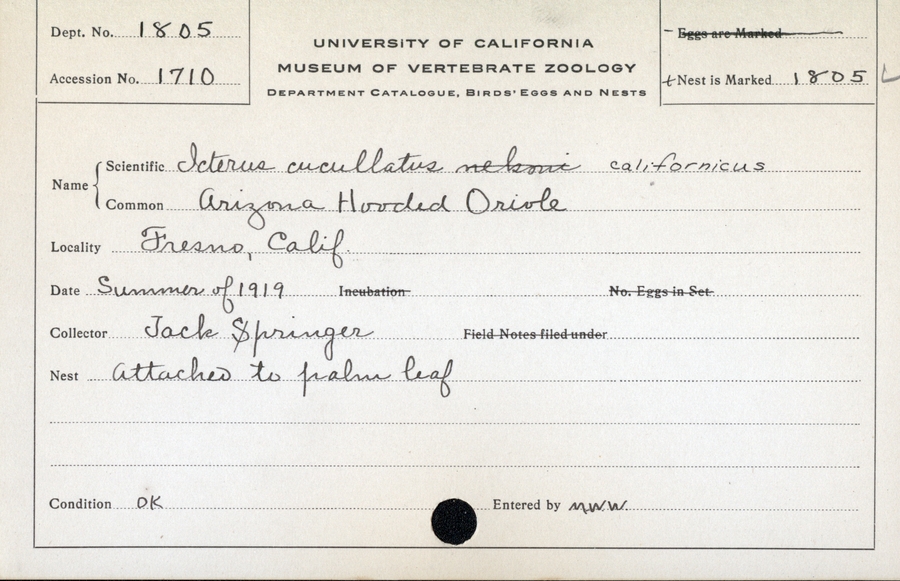 Dept. No. 1805
Accession No. 1710
UNIVERSITY OF CALIFORNIA
MUSEUM OF VERTEBRATE ZOOLOGY
DEPARTMENT CATALOGUE, BIRDS' EGGS AND NESTS
Eggs are Marked
Nest is Marked 1805
Name
Scientific Icterus cucullatus nelsoni californicus
Common Arizona Hooded Oriole
Locality Fresno, Calif.
Date Summer of 1919 Incubation No. Eggs in Set
Collector Jack Springer Field Notes filed under
Nest attached to palm leaf
Condition OK Entered by MWW.